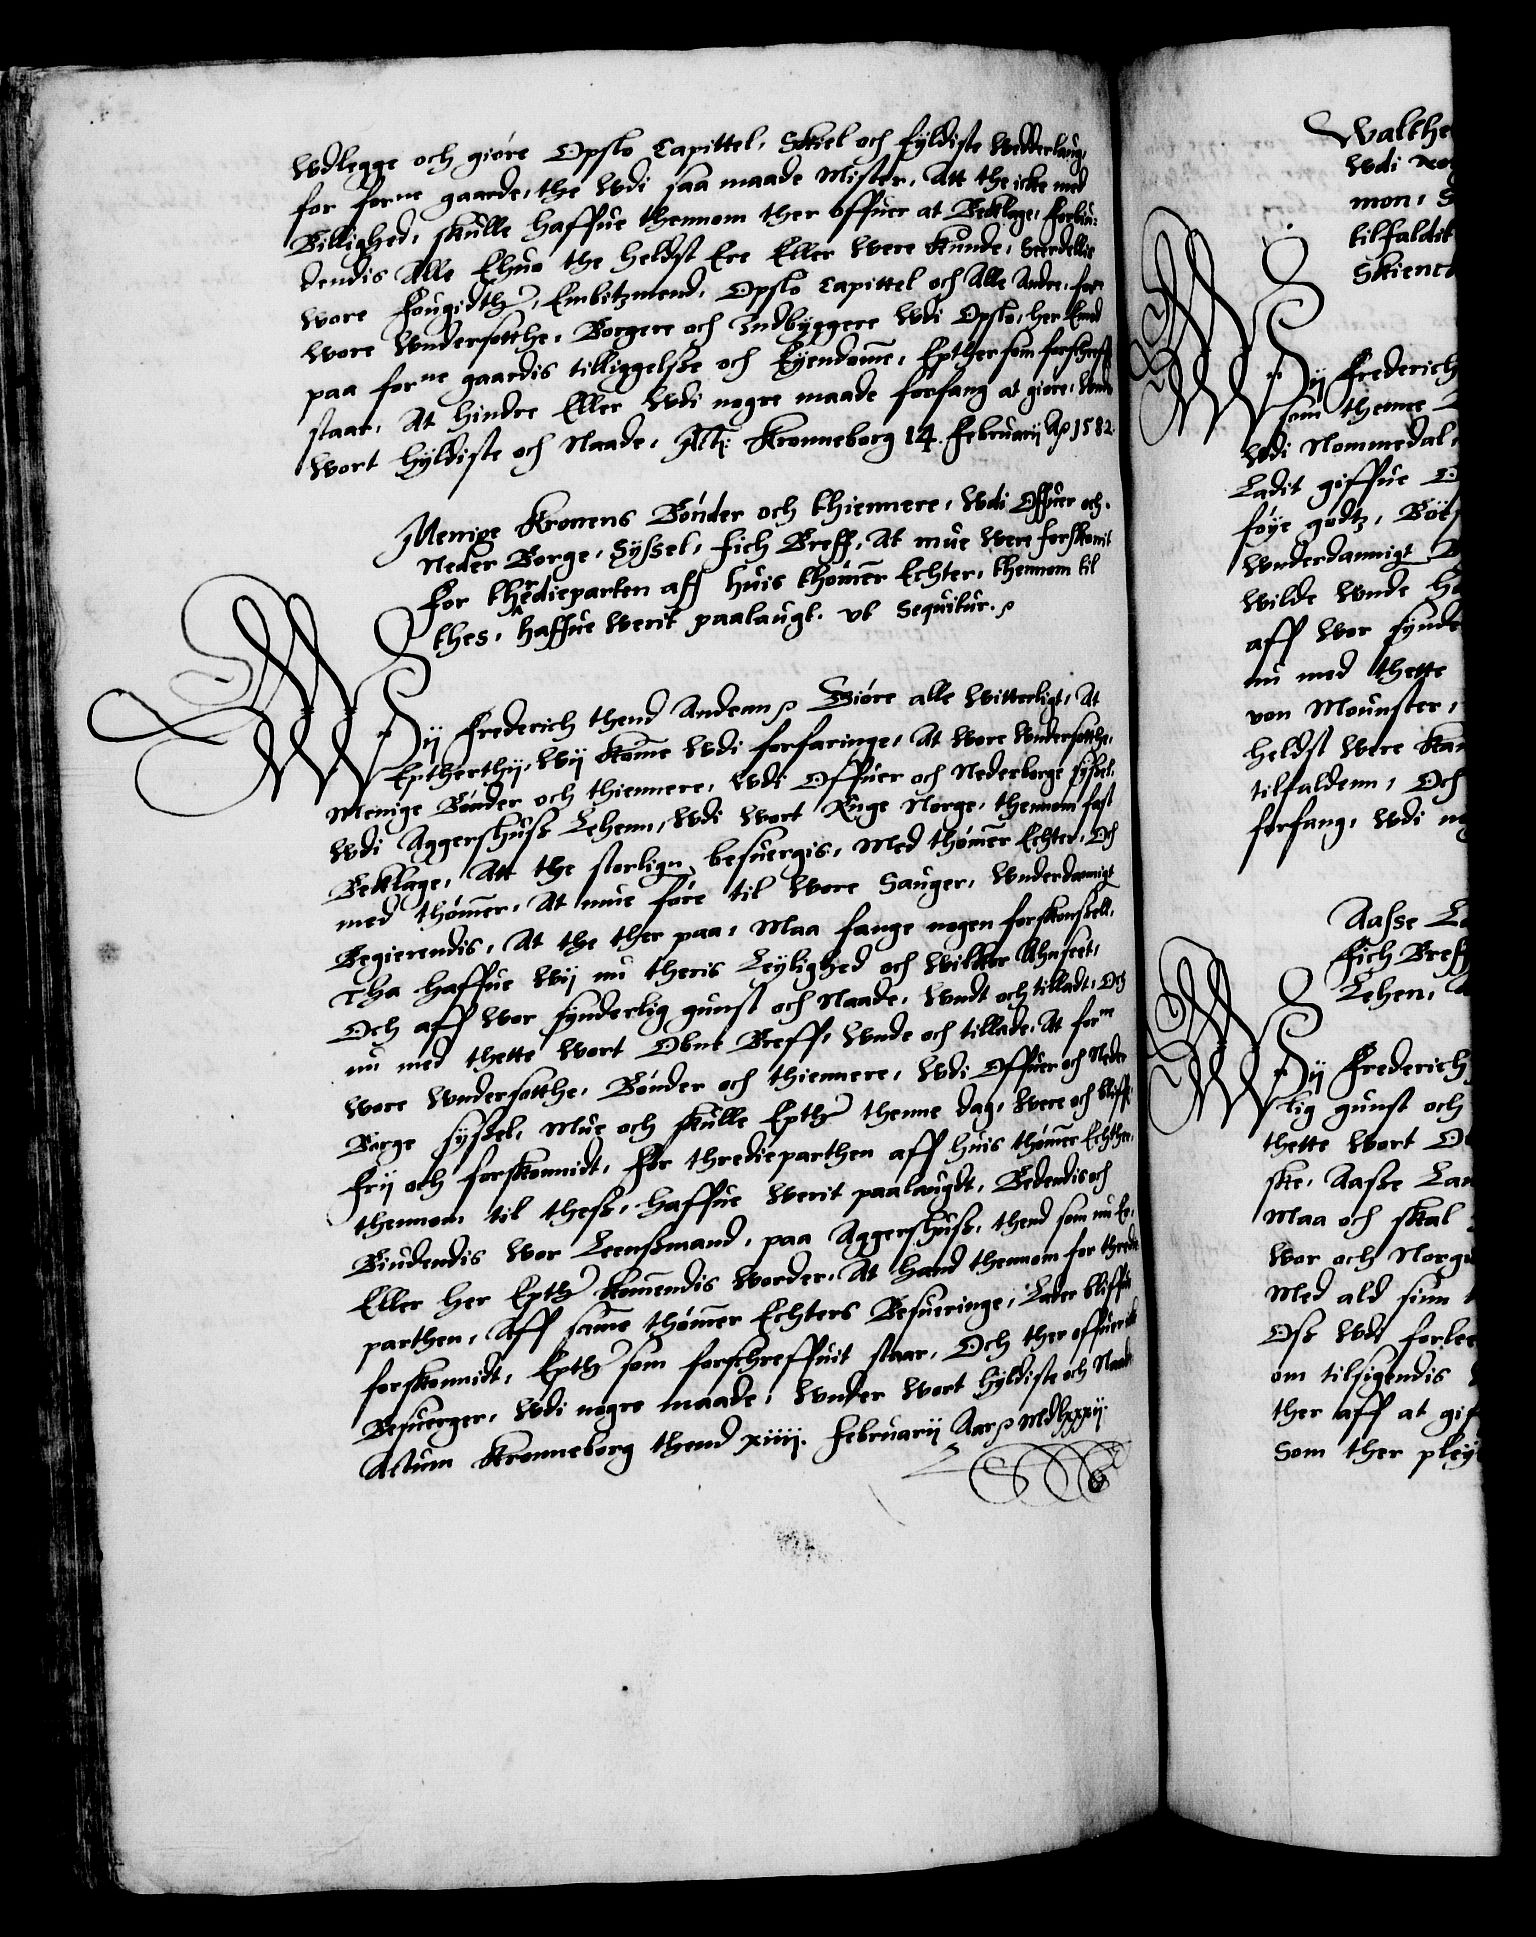 Wdlegge och giøre Opslo Capittel, Skiel och fyldiste Wedderlaug,
for forne gaarde, the Wdi saa maade Mister, Att the icke med
Billighed, skulle haffue thennom ther offuer at Beklage, forbiu-
dendis Alle Ehuo the heldst Ere Eller Were Kunde, Serdellis
Wore Fougidther, Embitzmend, Opslo Capittel och Alle Andre, forne
Wore Wndersotthe, Borgere och Indbyggere Wdi Opslo, her Emod
paa forne gaardis tilliggelsse och Eyendome, Epther som forschreff
staar, At hindre Eller Wdi nogre maade forfang at giøre, Wnder
Wort hyldiste och Naade, Actū Kronneborg 14. Februarij Ao 1582.
Menige Kronens Bønder och thiennere, Wdi Offuer och
Neder Borge, Syssel, fich Breff, At mue Were forskonit
For thredieparten aff huis thømer Echter, thennom til
thes, haffue Werit paalaugt. vt Sequitur.
Wij Frederich thend Andenn Giøre alle Witterligt, At
Eptherthij, Wij Kome Wdi forfaringe, At Wore Wndersotthe,
Menige Bønder och thiennere, Wdi Offuer och Nederborge syssel,
Wdi Aggershuss Lehenn, Wdi Wort Rige Norge, thennom fast
Beklage, Att the storlign besuergis, Med thømer Echter, Och
med thømer, At mue føre til Wore Sauger, Wnderdannigt
Begierendis, At the ther paa, Maa fange nogen forskonsell,
Tha haffue Wij nu theris Leylighed och Wilkor Ahnseet,
Och aff Wor synderlig gunst och Naade, Wndt och tilladt, Och
nu med thette Wort Obne Breff, Wnde och tillade, At forne
Wore Wndersotthe, Bønder och thiennere, Wdi Offuer och Neder
Borge syssel, Mue och skulle Epther thenne dag, Were och bliffue
Frij och forskonnidt, For thredieparthen aff huis thømer Echther,
thennom til thess, haffue Werit paalaugdt, Bedendis och
Biudendis Wor Leenssmand, paa Aggershuss, thend som nu Er,
Eller her Epther Komendis Worder, At hand thennom for thredie
parthen, Aff same thømer Echters Besueringe, Lader bliffue
forskonnidt, Epther som forschreffuit staar, Och ther offuer icke
Besuerger, Wdi nogre maade, Wnder Wort hyldiste och Naade
Actum Kronneborg thend xiiij. Februarij Aar Mdlxxxij.
Walthe
Wdi
mon, S
tilfaldit
Skienc
Wij Frederich
som thenne
Wdi Nommedal,
Ladit giffue
føye godtz,
Wnderdannigt
Wilde Wnde
aff Wor synde
nu med thette
von Mounster,
heldst Were Kan
tilfaldenn, Och
forfang, Wdi
Aasse La
Fich Breff
Lehen,
Wij Frederich
lig gunst och
thette Wort
ske, Aasse Lan
Maa och skal
Wor och Norge
Med ald sinn
Oss Wdi
om tilsigendis
ther aff at gif
Som ther